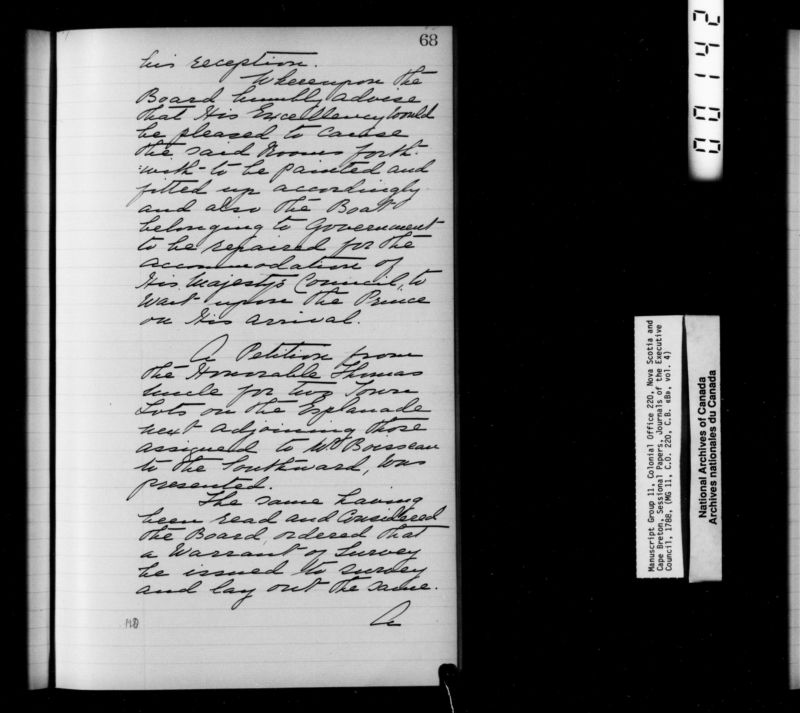 68
his reception.
Whereupon the
Board humbly advise
that His Excellency would
be pleased to cause
the said Rooms forth-
:with- to be painted and
fitted up accordingly
and also the Boat
belonging to Government
to be repaired for the
accommodation of
His Majestys Council, to
Wait upon the Prince
on His arrival.
A Petition from
the Honorable Thomas
Uncle for two Town
Lots on the Esplanade
next adjoining those
assigned to Wm Boisseau
to the Southward, was
presented.
The same having
been read and Considered
the Board, ordered that
a Warrant of Survey
be issued to survey
and lay out the same.
A
00142
Manuscript Group 11, Colonial Office 220, Nova Scotia and
Cape Breton, Sessional Papers, Journals of the Executive
Council, 1788, (MG 11, C.O. 220, C.B. «B», vol. 4)
National Archives of Canada
Archives nationales du Canada